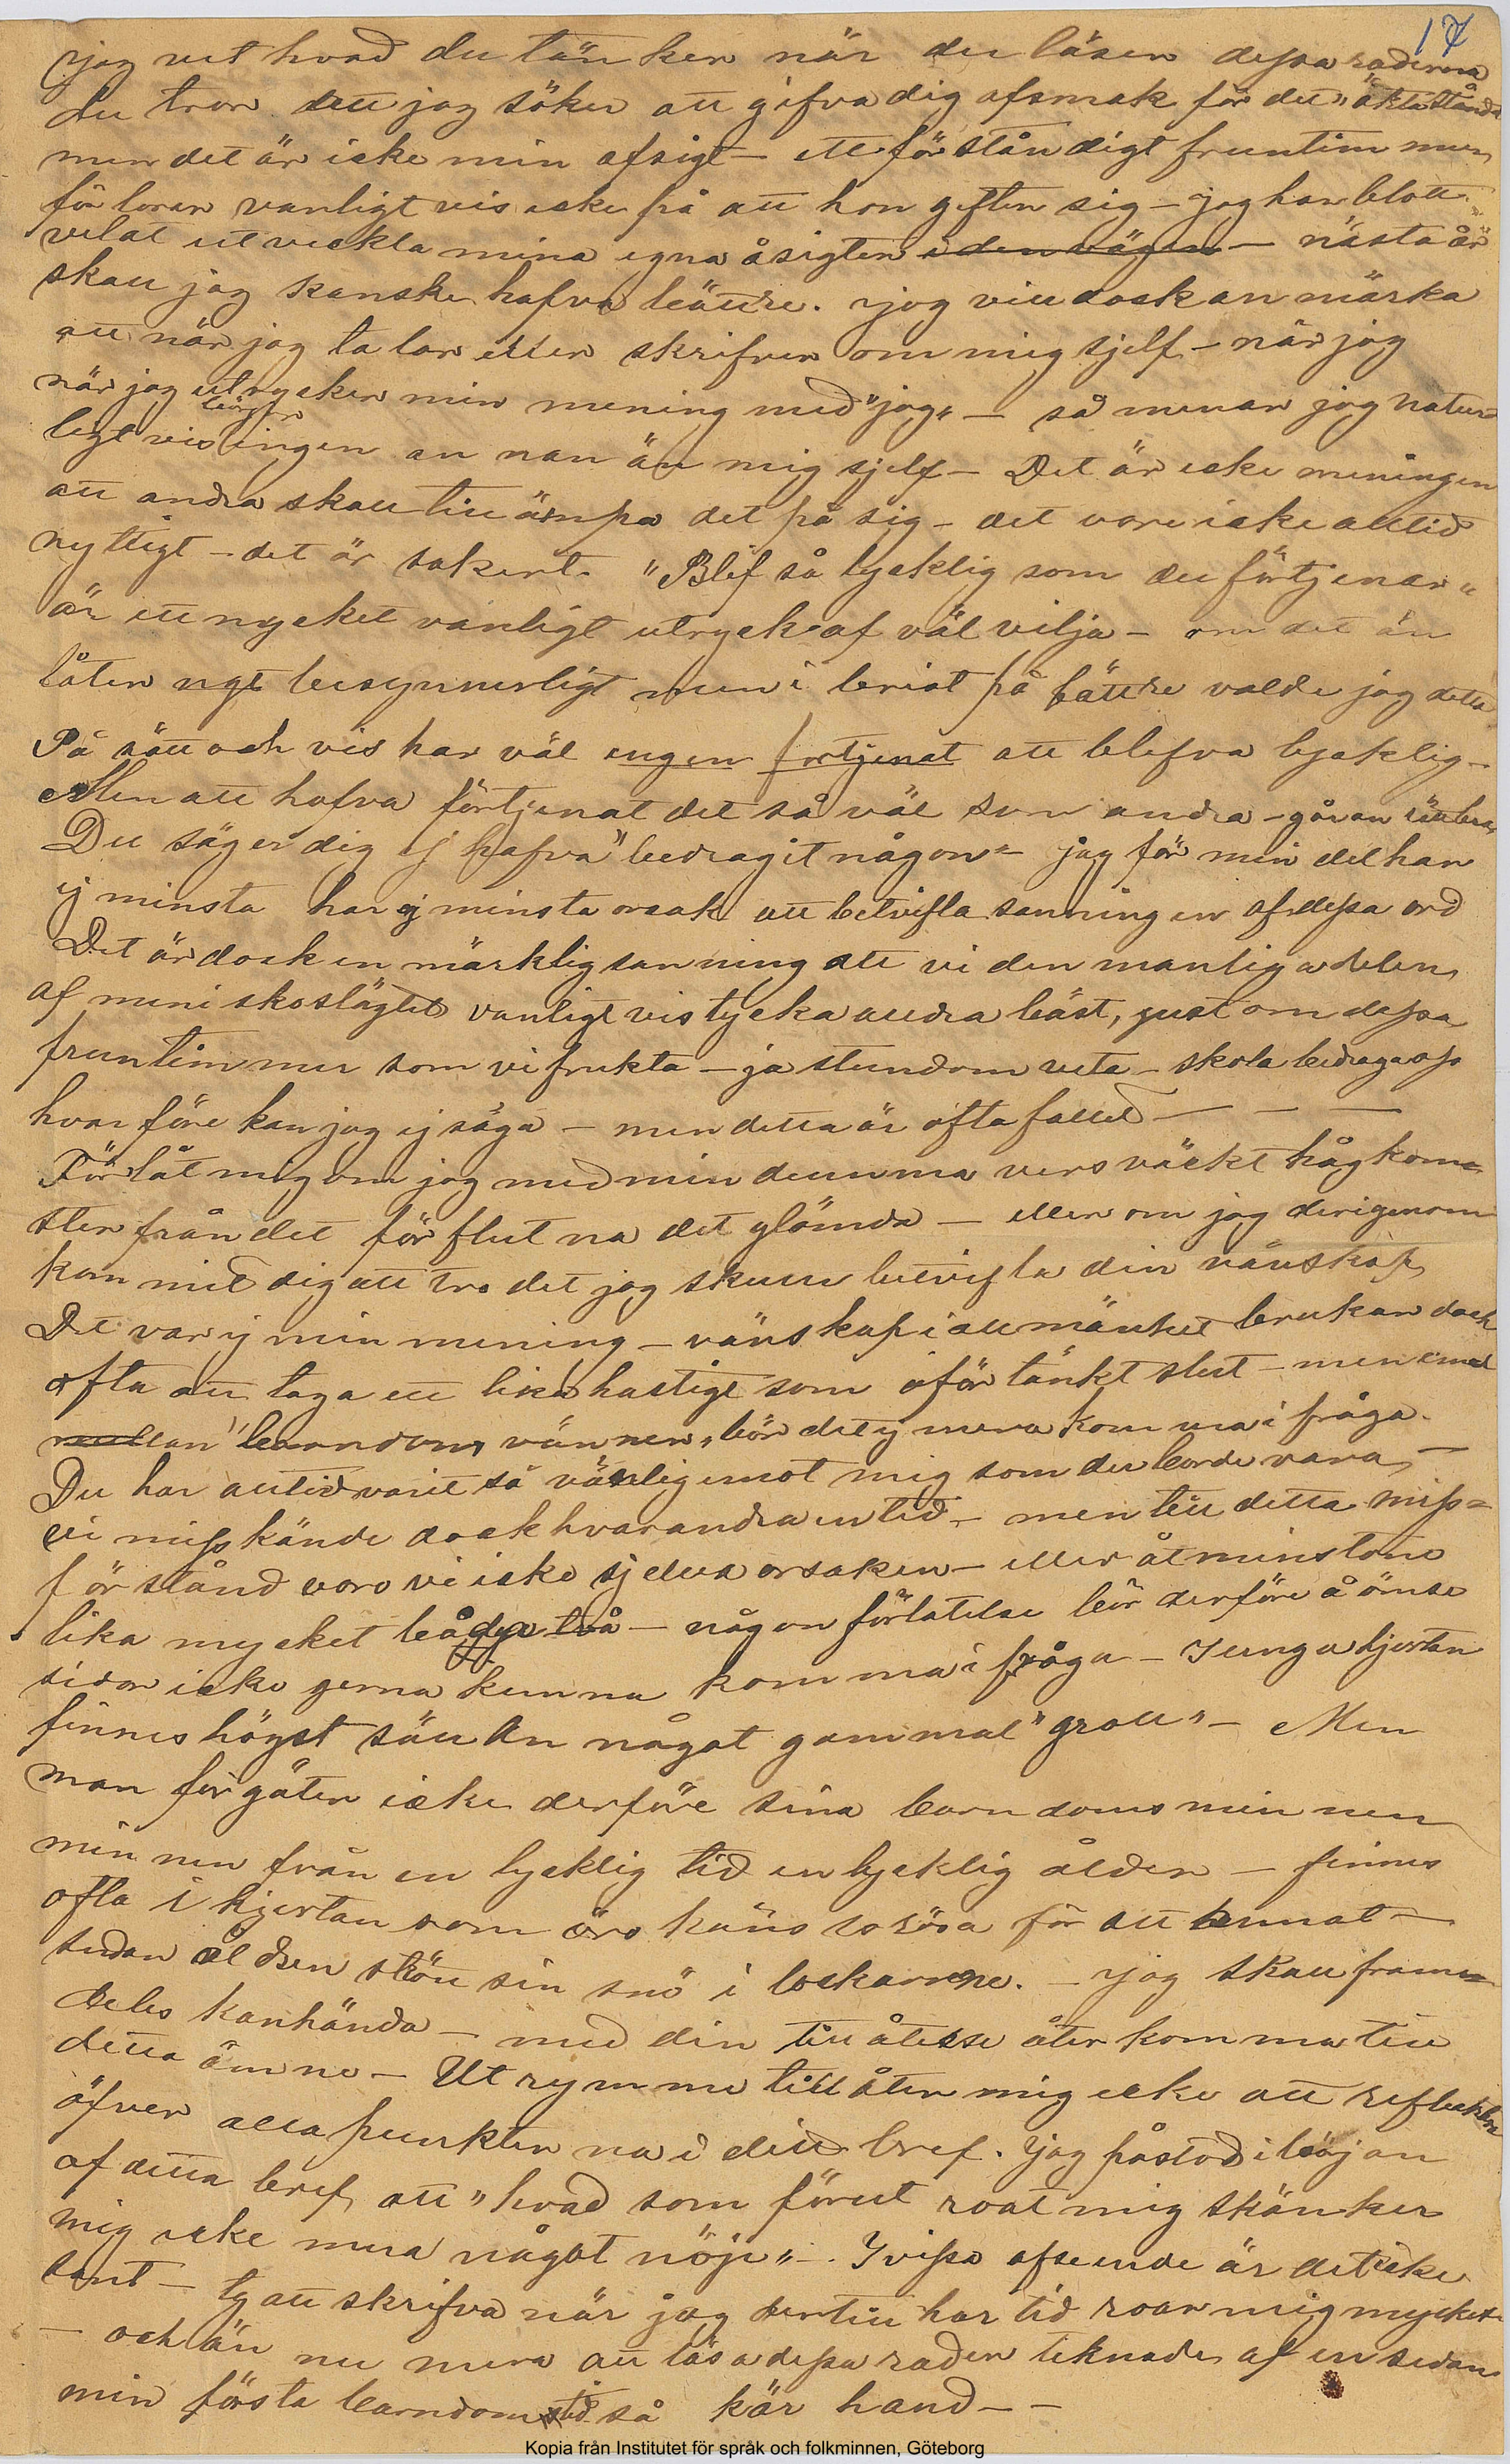 17
jag vet hvad du tänker när du läser dessa raderna
du tror det jag söker att gifva dig afsmak för det "äkta ståndet
men det är icke min afsigt – ett förståndigt fruntimmer
förlorar vanligtvis icke på att hon gifter sig – jag har blott
velat utveckla mina egna åsigter i den vägen – nästa år
skall jag kanske hafva bättre. jag vill dock an märka
att när jag talar eller skrifver om mig sjelf – när jag
när jag utrycker min mening med "jag" – så menar jag natur
ligt vis ingen an nan än mig sjelf – Det är icke meningen
att andra skall till ämpa det på sig – det vore icke alltid
nyttigt – det är säkert. "Blif så lycklig som du förtjenar"
är ett mycket vanligt utryck af väl vilja – om det än
låter ngt besynnerligt men i brist på bättre valde jag detta
På sätt och vis har väl ingen förtjenat att blifva lycklig –
Men att hafva förtjenat det så väl som andra – går an rätt bra
Du säger dig ej hafva "bedragit någon" – jag för min del har
ej minsta har ej minsta orsak att betvifla sanningen af dessa ord
Det är dock en märklig sanning att vi den manliga delen
af meniskoslägtet vanligt vis tycka alldra bäst, just om dessa
fruntimmer som vi frukta – ja stundom veta – skola bedraga oss
hvarföre kan jag ej säga – men detta är ofta fallet – – –
Förlåt mig om jag med min dumma vers väckt hågkom
ster från det för flut na det glömda – eller om jag derigenom
kom mit dig att tro det jag skulle betvifla din vänskap
Det var ej min mening – vänskap i allmänhet brukar dock
ofta att taga ett lika hastigt som oför tänkt slut – men emel
mellan "barndoms vänner" bör det ej mera komma i fråga.
Du har alltid varit så vänlig emot mig som du borde vara –
vi miss kände dock hvarandra en tid – men till detta miss=
förstånd voro vi icke sjelva orsaken – eller åtminstone
lika mycket både två – någon förlåtelse bör derföre å ömse
sidor icke gerna kunna komma i fråga – I unga hjertan
finnes högst sällan något gammal "groll" – Men
man förgäter icke derföre sina barn doms min nen
min nen från en lycklig tid en lycklig ålder – finnes
ofta i hjertan som äro käns so lösa för allt annat –
sedan åldren strött sin snö i lockarne. – jag skall fram
deles kanhända – med din till åtelse åter komma till
detta ämne – Ut rymme till åter mig icke att reflecktera
öfver alla punkter na i ditt bref. jag påstod i början
af detta bref, att "hvad som förut roat mig skänker
mig icke mera något nöje" –. I vissa afseende är det icke
sant – ty att skrifva när jag dertill har tid roar mig mycket
– och än nu mera att läsa dessa rader teknade af en sedan
min första barndoms tid så kär hand – –
Kopia från Institutet för språk och folkminnen, Göteborg